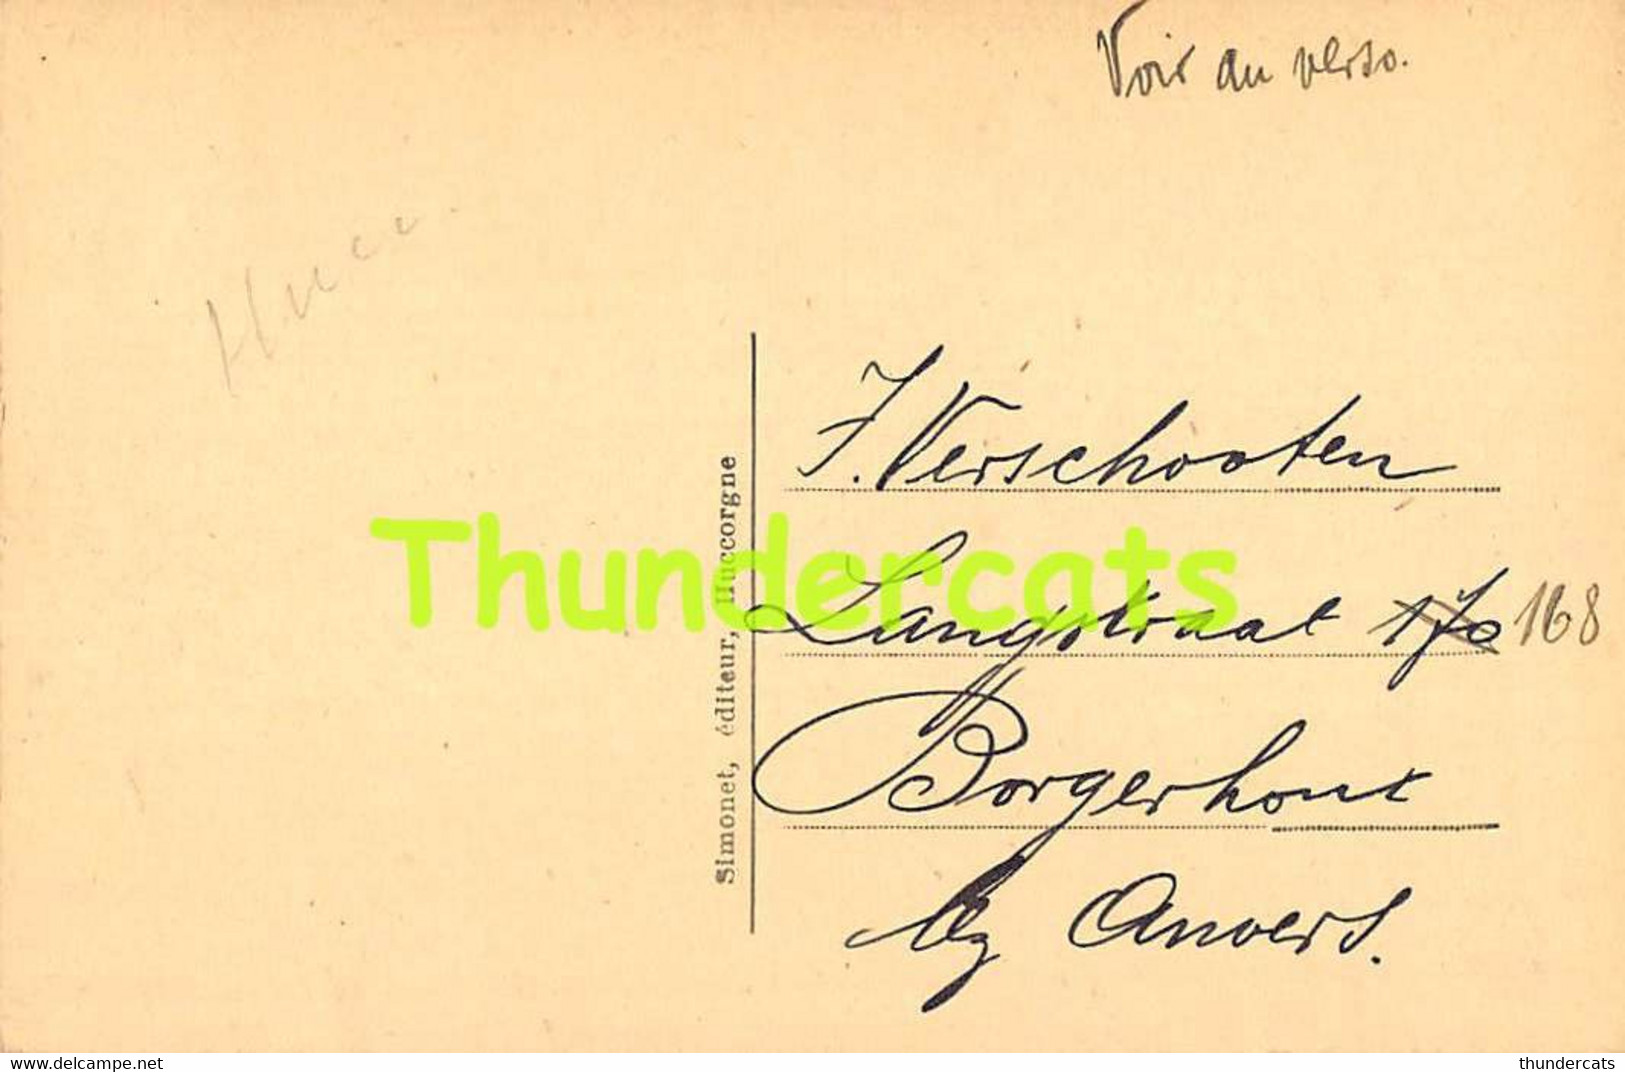 Voir au verso.
J. Verschooten
Langstraat 170 168
Borgerhout
by Anvers.
Simonet, éditeur, Huccorgne
Thundercats
www.delcampe.net
thundercats